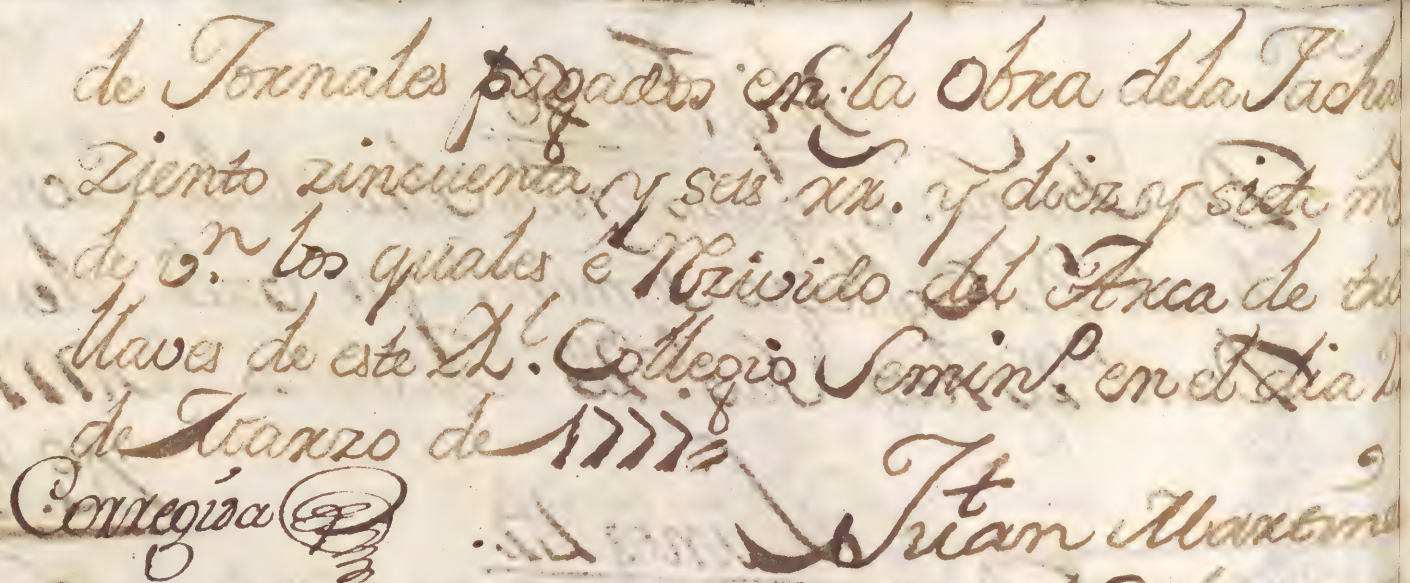 de Jornales pagados en la Obra dela Facha
Ziento zincuenta y seis rr. y diez y siete ms
de v.n los quales e Rezivido del Arca de tres
llaves de este Rl. Collegio Semin.o en el dia
de Marzo de 1777
Corregida Juan Martin